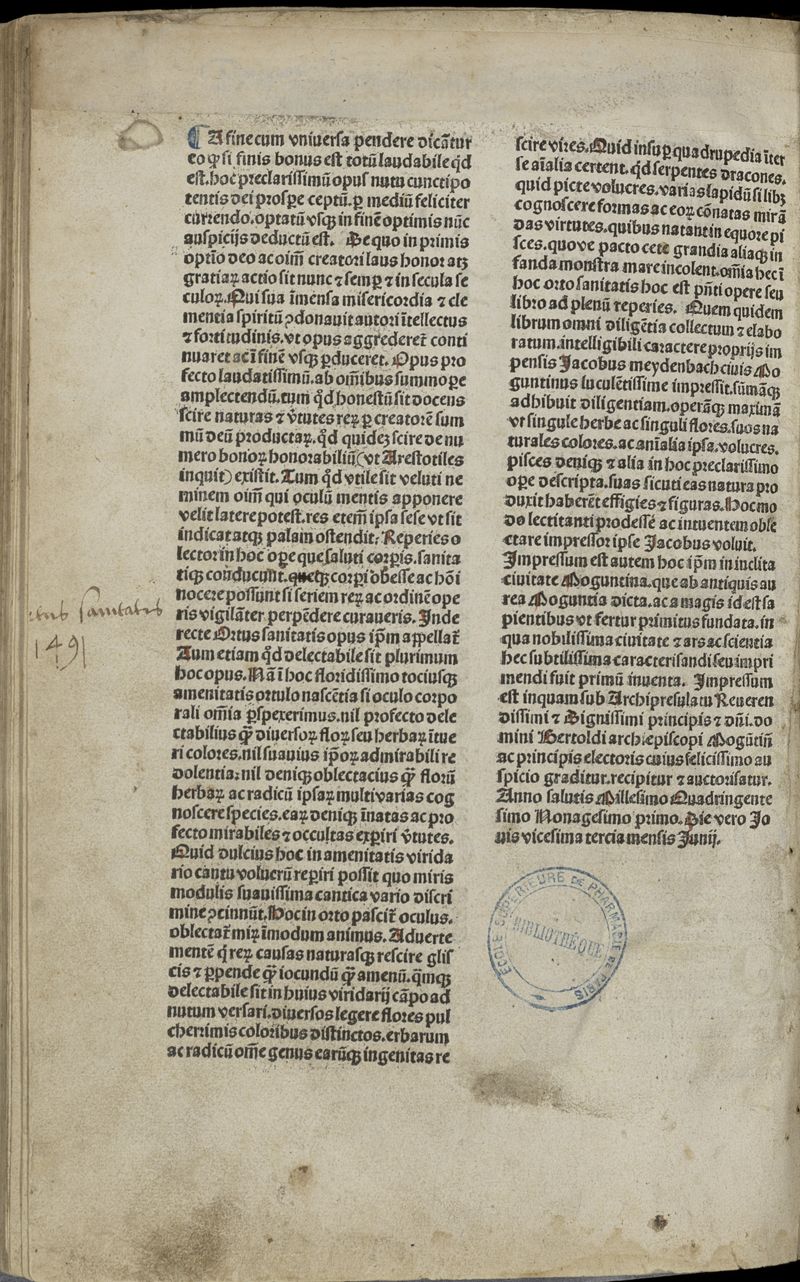 ¶ A fine cum vniuersa pendere dicãtur
eo ꝙ si finis bonus est totũ laudabile qd̾
est. hoc preclarissimũ opus nutu cunctipo
tentis dei prosꝑe ceptũ. ꝑ mediũ feliciter
currendo. optatũ vsqꝫ in finẽ optimis nũc
auspicijs deductũ est. De quo in primis
optĩo deo ac oim̃ creatori laus honor atqꝫ
gratiaꝝ actio sit nunc ⁊ semꝑ ⁊ in secula se
culoꝝ. Qui sua ĩmensa misericordia ⁊ cle
mentia spiritũ ꝯdonauit autori ĩtellectus
⁊ fortitudinis. vt opus aggrederet̃ conti
nuaret ac ĩ finẽ vsqꝫ ꝑduceret. Opus pro
fecto laudatissimũ. ab om̃ibus summoꝑe
amplectendũ. tum qd̾ honestũ sit docens
scire naturas ⁊ v̾tutes reꝝ ꝑ creatorẽ sum
mũ deũ productaꝝ. qd̾ quidẽ scire de nu
mero bonoꝝ honorabiliũ (vt Arestotiles
inquit) existit. Tum qd̾ vtile sit veluti ne
minem oim̃ qui oculũ mentis apponere
velit latere potest. res etem̃ ipsa sese vt sit
indicat atqꝫ palam ostendit. Reperies o
lector in hoc oꝑe que saluti corꝑis. sanita
tiqꝫ conducunt. queqꝫ corꝑi obesse ac hoĩ
nocere possunt si seriem reꝝ ac ordinẽ oꝑe
ris vigilãter perpẽdere curaueris. Inde
recte Ortus sanitatis opus ip̃m appellat̃
Tum etiam qd̾ delectabile sit plurimum
hoc opus. Nã ĩ hoc floridissimo tociusqꝫ
amenitatis ortulo nascẽtia si oculo corpo
rali om̃ia ꝑspexerimus. nil profecto dele
ctabilius ꝙ̃ diuersoꝝ floꝝ seu herbaꝝ ĩtue
ri colores. nil suauius ip̃oꝝ admirabili re
dolentia: nil deniqꝫ oblectacius ꝙ̃ florũ
herbaꝝ ac radicũ ipsaꝝ multivarias cog
noscere species. eaꝝ deniqꝫ ĩnatas ac pro
fecto mirabiles ⁊ occultas exꝑiri v̾tutes.
Quid dulcius hoc in amenitatis virida
rio cantu volucrũ reꝑiri possit quo miris
modulis suauissima cantica vario discri
mine ꝯcinnũt. Hoc in orto pascit̃ oculus.
oblectat̃ miꝝ ĩmodum animus. Aduerte
mentẽ q̃ reꝝ causas naturasqꝫ rescire glis
cis ⁊ ꝑpende ꝙ̃ iocundũ ꝙ̃ amenũ. q̃mqꝫ
delectabile sit in huius viridarij cãpo ad
nutum versari. diuersos legere flores pul
cherrimis coloribus distinctos. erbarum
ac radicũ om̃e genus earũqꝫ ingenitas re
scire vires. Quid insuꝑ quadrupedia ĩter
se aĩalia certent. qd̾ serpentes dracones.
quid picte volucres. varias lapidũ si libꝫ
cognoscere formas ac eoꝝ cõnatas mirã
das virtutes. quibus natant in equore pi
sces. quove pacto cete grandia aliaqꝫ in
fanda monstra mare incolent. om̃ia hec ĩ
hoc orto sanitatis hoc est pñti opere seu
libro ad plenũ reperies. Quem quidem
librum omni diligẽtia collectum ⁊ elabo
ratum. intelligibili caractere proprijs im
pensis Jacobus meydenbach ciuis Mo
guntinus luculẽtissime impressit. sũmãqꝫ
adhibuit diligentiam. operãqꝫ maximã
vt singule herbe ac singuli flores. suos na
turales colores. ac anĩalia ipsa. volucres.
pisces deniqꝫ ⁊ alia in hoc preclarissimo
oꝑe descripta. suas sicuti eas natura pro
duxit haberẽt effigies ⁊ figuras. Hoc mo
do lectitanti prodesse ac intuentem oble
ctare impressor ipse Jacobus voluit.
Impressum est autem hoc ip̃m in inclita
ciuitate Moguntina. que ab antiquis au
rea Moguntia dicta. ac a magis id est sa
pientibus vt fertur primitus fundata. in
qua nobilissima ciuitate ⁊ ars ac scientia
hec subtilissima caracterisandi seu impri
mendi fuit primũ inuenta. Impressum
est inquam sub Archipresulatu Reueren
dissimi ⁊ Dignissimi principis ⁊ dñi. do
mini Bertoldi archiepiscopi Mogũtiñ
ac principis electoris cuius felicissimo au
spicio graditur. recipitur ⁊ auctorisatur.
Anno salutis Millesimo Quadringente
simo Nonagesimo primo. Die vero Jo
uis vicesima tercia mensis Junij.
sanitatis
1491
ECOLE SUPERIEURE DE PHARMACIE PARIS
BIBLIOTHÈQUE